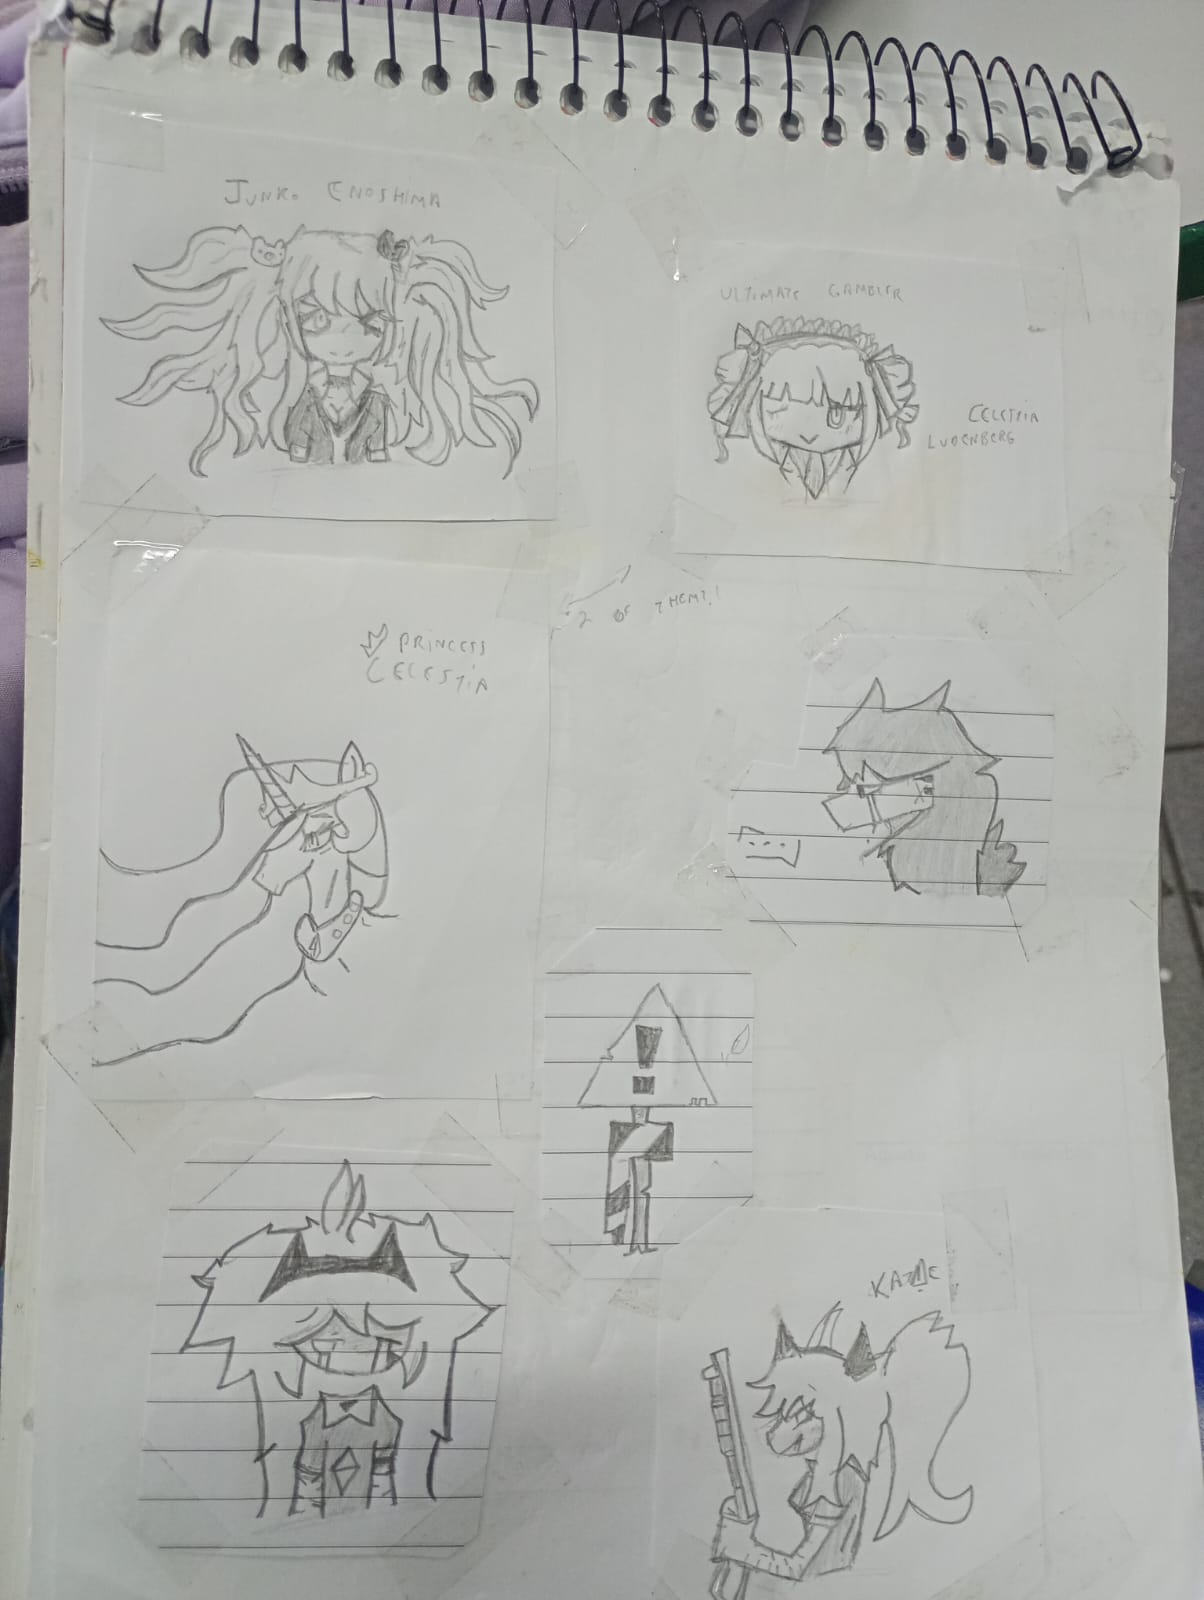 JUNKO ENOSHIMA
ULTIMATE GAMBLER
CELESTIA
LUDENBERG
2 OF THEM?!
PRINCESS
CELESTIA
....
!